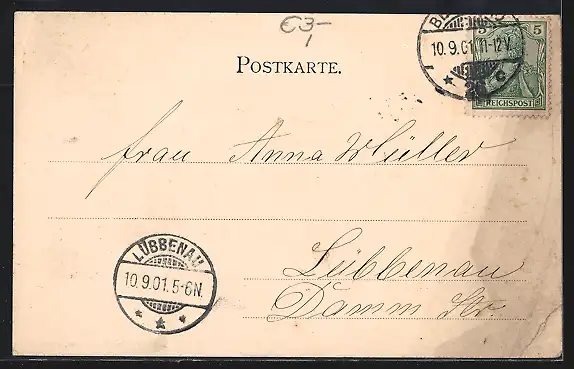 €3-
5 5
10.9.01.11-12V.
26 c
REICHSPOST
POSTKARTE.
Frau Anna Müller
LÜBBENAU
10.9.01.5-6N.
Lübbenau
Damm Str.